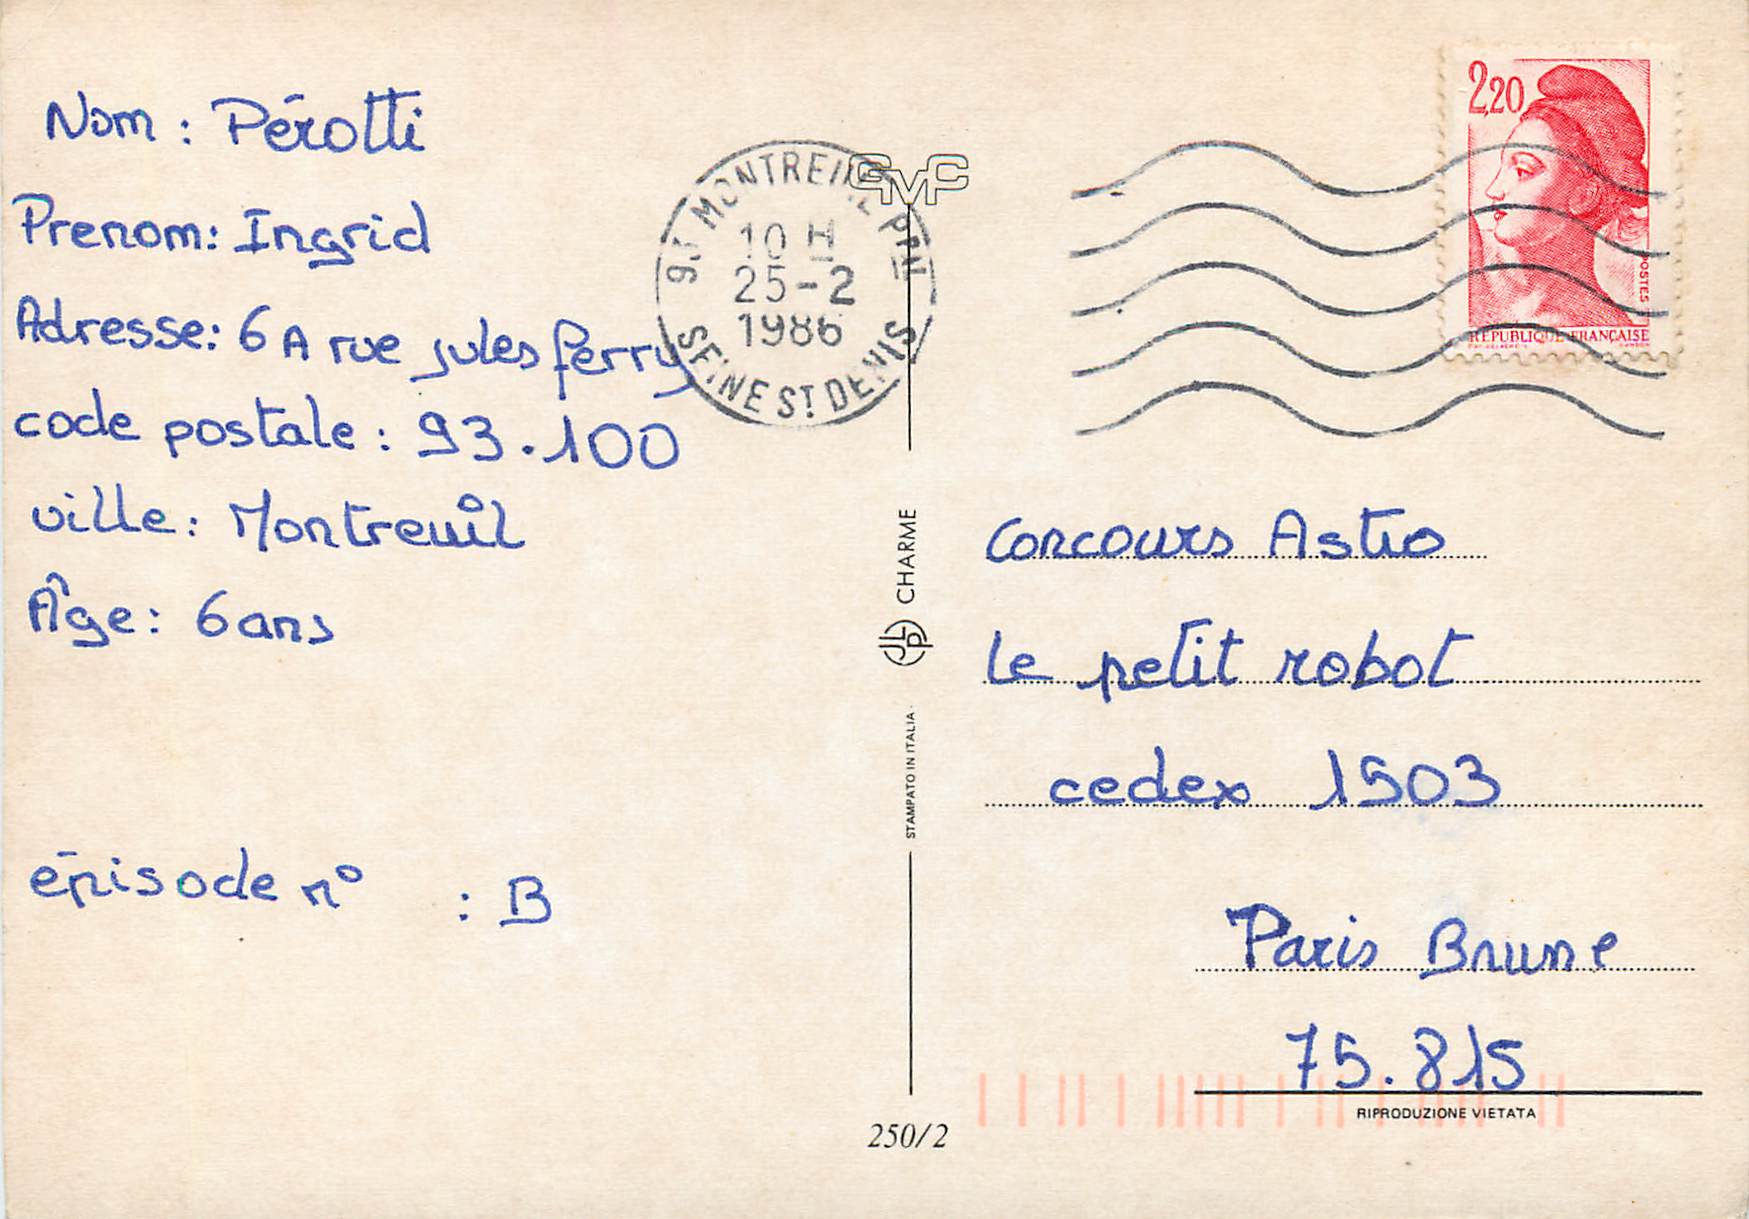 Nom : Pérotti
Prenom: Ingrid
Adresse: 6 A rue jules ferry
code postale : 93.100
ville : Montreuil
Âge : 6 ans
épisode n° : B
93 MONTREUIL PPAL
10 H
25-2
1986
SEINE ST DENIS
GMC
CHARME
JLP
STAMPATO IN ITALIA
250/2
2,20
POSTES
REPUBLIQUE FRANÇAISE
Concours Astro
le petit robot
cedex 1503
Paris Brune
75.815
RIPRODUZIONE VIETATA